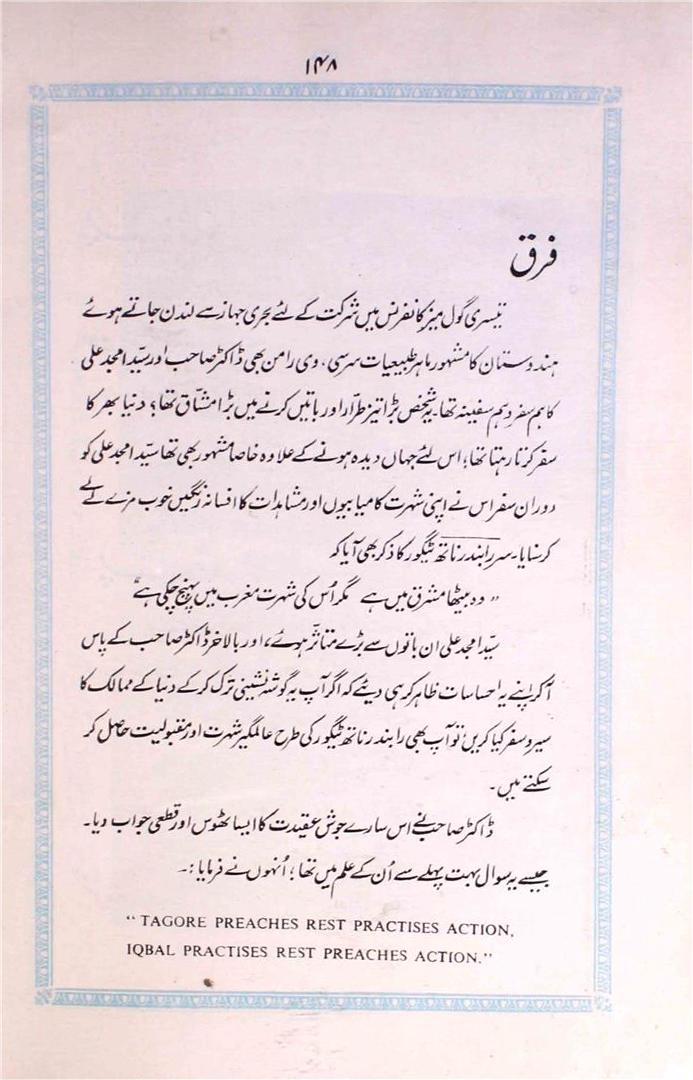 ۱۴۸
فرق
تیسری گول میز کانفرنس میں شرکت کے لئے بحری جہاز سے لندن جاتے ہوئے
ہندوستان کا مشہور ماہر طبیعیات سرسی، وی رامن بھی ڈاکٹر صاحب اور سیّد امجد علی
کا ہم سفر و ہم سفینہ تھا۔ یہ شخص بڑا تیز طرّار اور باتیں کرنے میں بڑا مشّاق تھا؟ دنیا بھر کا
سفر کرتا رہتا تھا؛ اس لئے جہاں دیدہ ہونے کے علاوہ خاصا مشہور بھی تھا سیّد امجد علی کو
دوران سفر اس نے اپنی شہرت کامیابیوں اور مشاہدات کا افسانہ رنگیں خوب مزے لے لے
کر سنایا۔ سر رابندر ناتھ ٹیگور کا ذکر بھی آیا کہ
”وہ بیٹھا مشرق میں ہے مگر اُس کی شہرت مغرب میں پہنچ چکی ہے“
سیّد امجد علی ان باتوں سے بڑے متاثّر ہوئے، اور بالاخر ڈاکٹر صاحب کے پاس
آ کر اپنے یہ احساسات ظاہر کر ہی دیئے کہ اگر آپ یہ گوشہ نشینی ترک کر کے دنیا کے ممالک کا
سیر و سفر کیا کریں تو آپ بھی رابندر ناتھ ٹیگور کی طرح عالمگیر شہرت اور مقبولیت حاصل کر
سکتے ہیں۔
ڈاکٹر صاحب نے اس سارے جوش عقیدت کا ایسا ٹھوس اور قطعی جواب دیا۔
جیسے یہ سوال بہت پہلے سے اُن کے علم میں تھا؛ اُنہوں نے فرمایا :۔
“TAGORE PREACHES REST PRACTISES ACTION,
IQBAL PRACTISES REST PREACHES ACTION.”